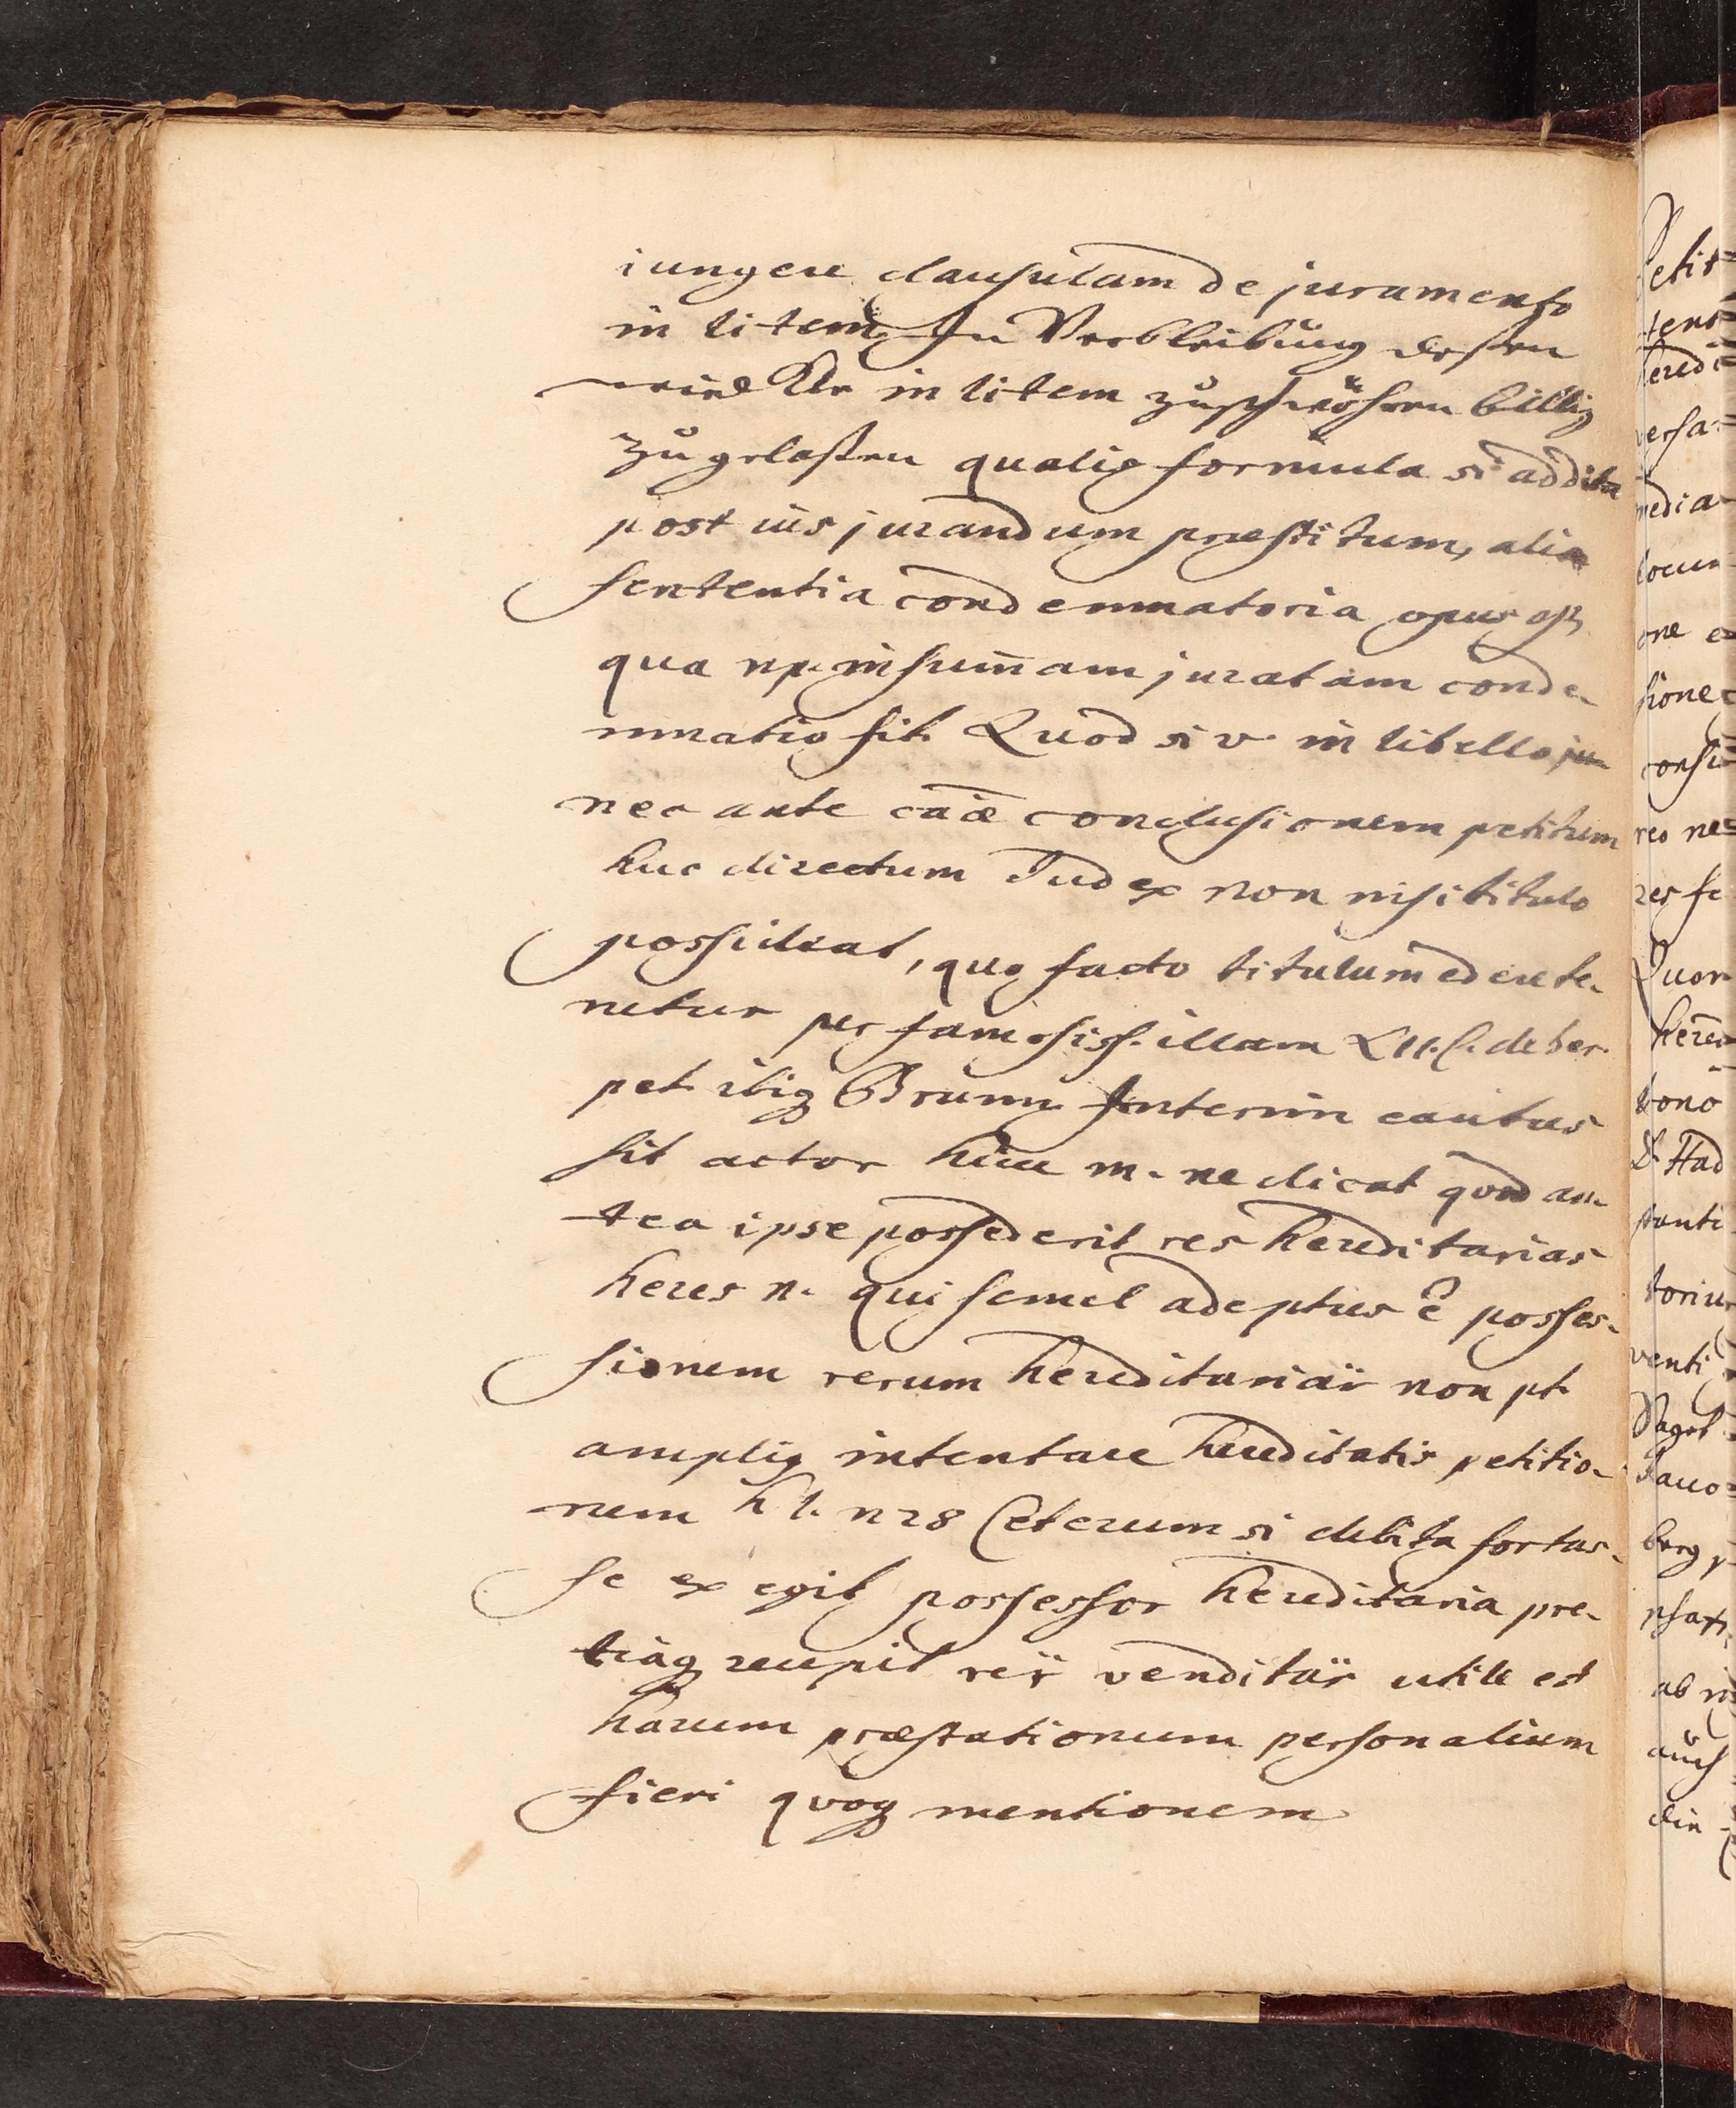 iungere clausulam de juramento
in litem In Verbleibung deßen
wird Klr in litem zuschwöhren billig
zugelaßen qualis formula si addita
post iusjurandum præstitum, alia
sententia condemnatoria opus est,
qua np. in sum̄am juratam conde-
mnatio fit. Quod si v. in libello
nec ante cāæ conclusionem petitum
huc directum Judex non nisi titulo
possideat, quo facto titulum edere te-
netur per famosiss. illam L 11. C. de her.
pet. ibiq Brunn. Interim cautus
sit actor hīc m. ne dicat qvod an-
tea ipse possederit res hereditarias
heres n. qui semel adeptus ē posses-
sionem rerum hereditariar̄ non pt.
amplig intentare hereditatis petitio-
nem h l. n 28 Ceterum si debita fortas-
se exegit possessor hereditaria pre-
tiaq recepit rer̄ venditar̄ utile est
harum præstationum personalium
fieri qvoq mentionem
Petit
tens
heredi
versa-
media-
locum
one e
sione
consi
reo ne
res se
Quon
hered
bono
& Had
stanti
toriu
venti
berg
ab in
auch
din